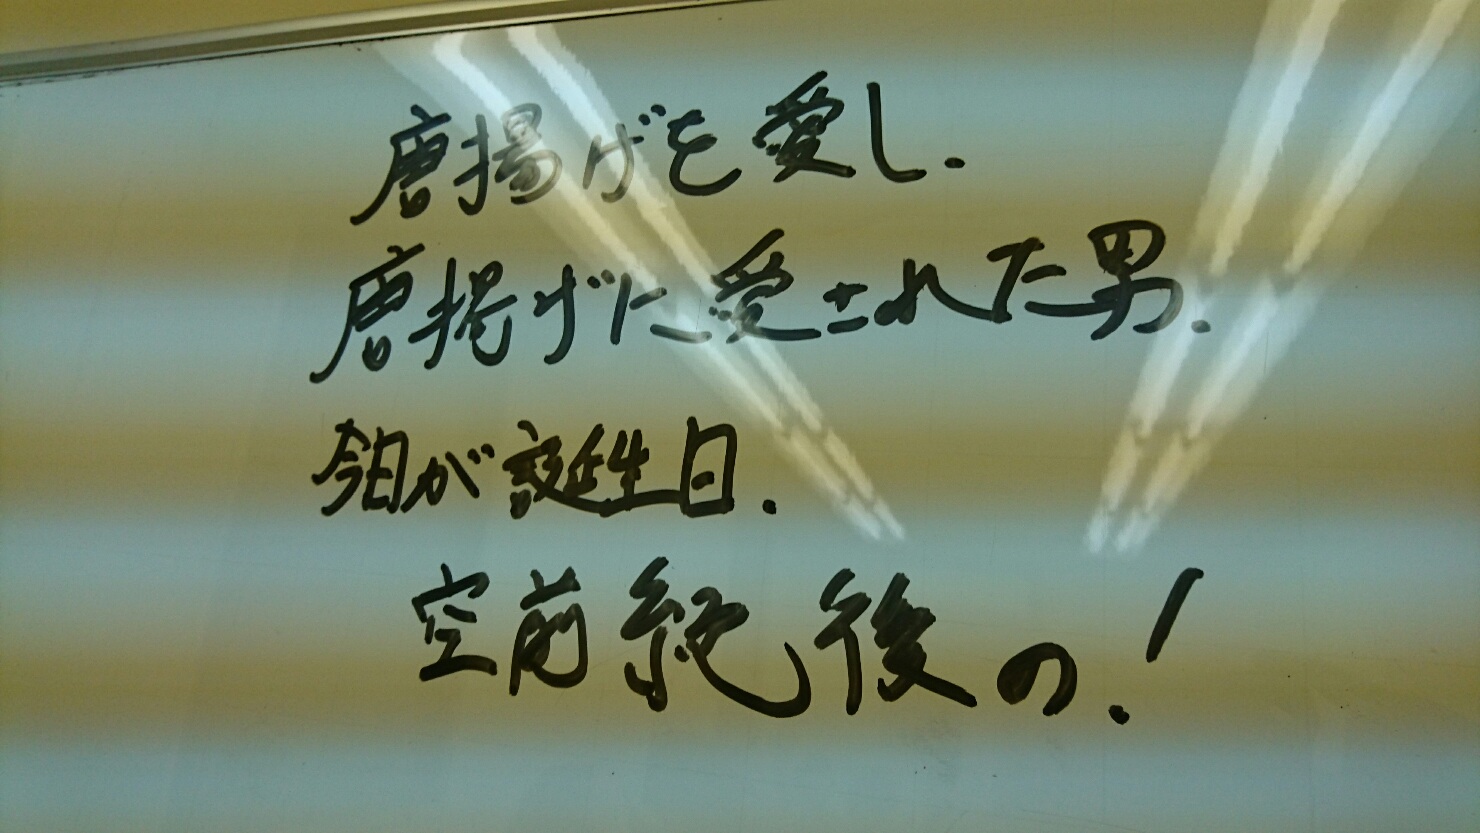 唐揚げを愛し.
唐揚げに愛された男.
今日が誕生日.
空前絶後の!